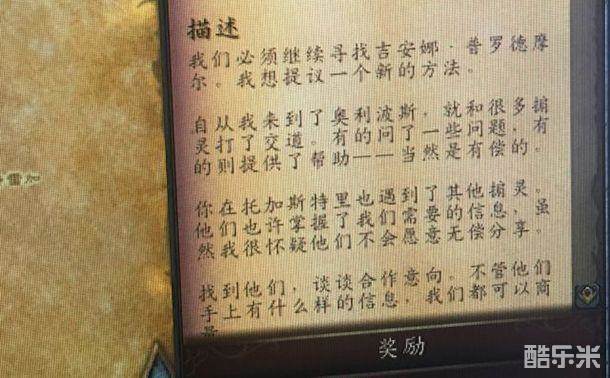 描述
我们必须继续寻找吉安娜·普罗德摩
尔。我想提议一个新的方法。
自从我来到了奥利波斯，就和很多掮
灵打了交道。有的问了一些问题，有
的则提供了帮助——当然是有偿的。
你在托加斯特里也遇到了其他掮灵。
他们也许掌握了我们需要的信息，虽
然我很怀疑他们不会愿意无偿分享。
找到他们，谈谈合作意向。不管他们
手上有什么样的信息，我们都可以商
奖励
雷加
酷乐米